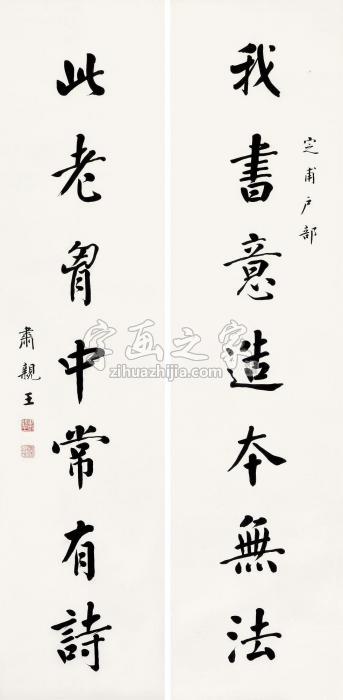 定甫户部
我書意造本無法
此老胷中常有詩
肅親王
字画之家
zihuazhijia.com